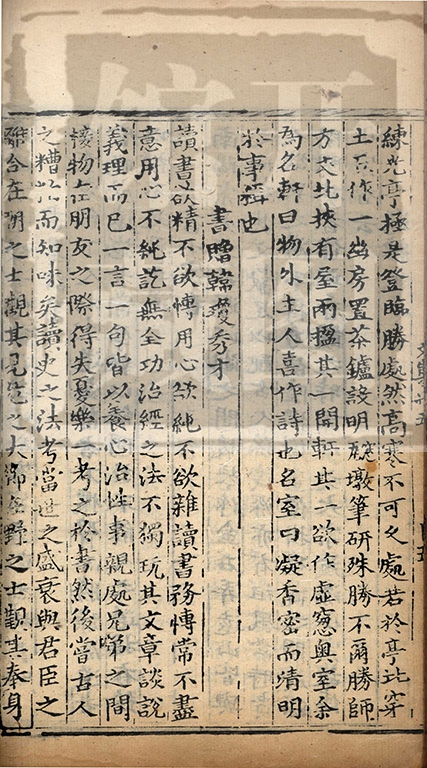 練光亭極是登臨勝處然高寒不可久處若於亭北穿
土石作一幽房置茶鑪設明窻墩筆研殊勝不爾勝師
方丈北挾有屋兩楹其一開軒其一欲作虛窻奧室余
為名軒曰物外主人喜作詩也名室曰凝香密而清明
於事稱也
書贈韓瓊秀才
讀書欲精不欲博用心欲純不欲雜讀書務博常不盡
意用心不純訖無全功治經之法不獨玩其文章談說
義理而已一言一句皆以養心治性事親處兄弟之間
接物在朋友之際得失憂樂一考之於書然後嘗古人
之糟粕而知味矣讀史之法考當世之盛衰與君臣之
離合在朝之士觀其見危之大節在野之士觀其奉身